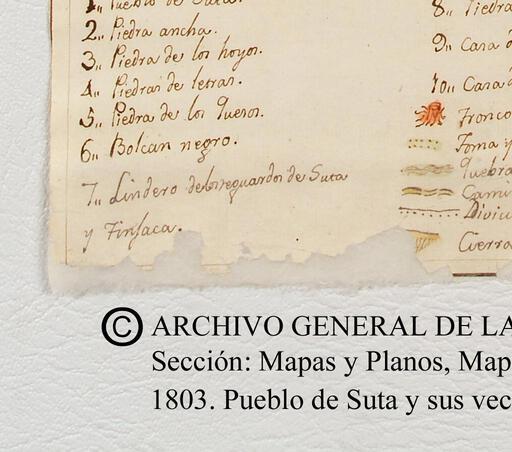 1,, Pueblo de Suta.
2,, Piedra ancha.
3,, Piedra de los hoyos.
4,, Piedras de letras.
5,, Piedra de los Quesos.
6,, Bolcan negro.
7,, Lindero de los reguardos de Suta
y Tinjaca.
8,, Piedra
9,, Casa d
10,, Casa d
Tronco
Toma y
Quebra
Cami
Divici
Cierra
© ARCHIVO GENERAL DE LA
Sección: Mapas y Planos, Map
1803. Pueblo de Suta y sus vec